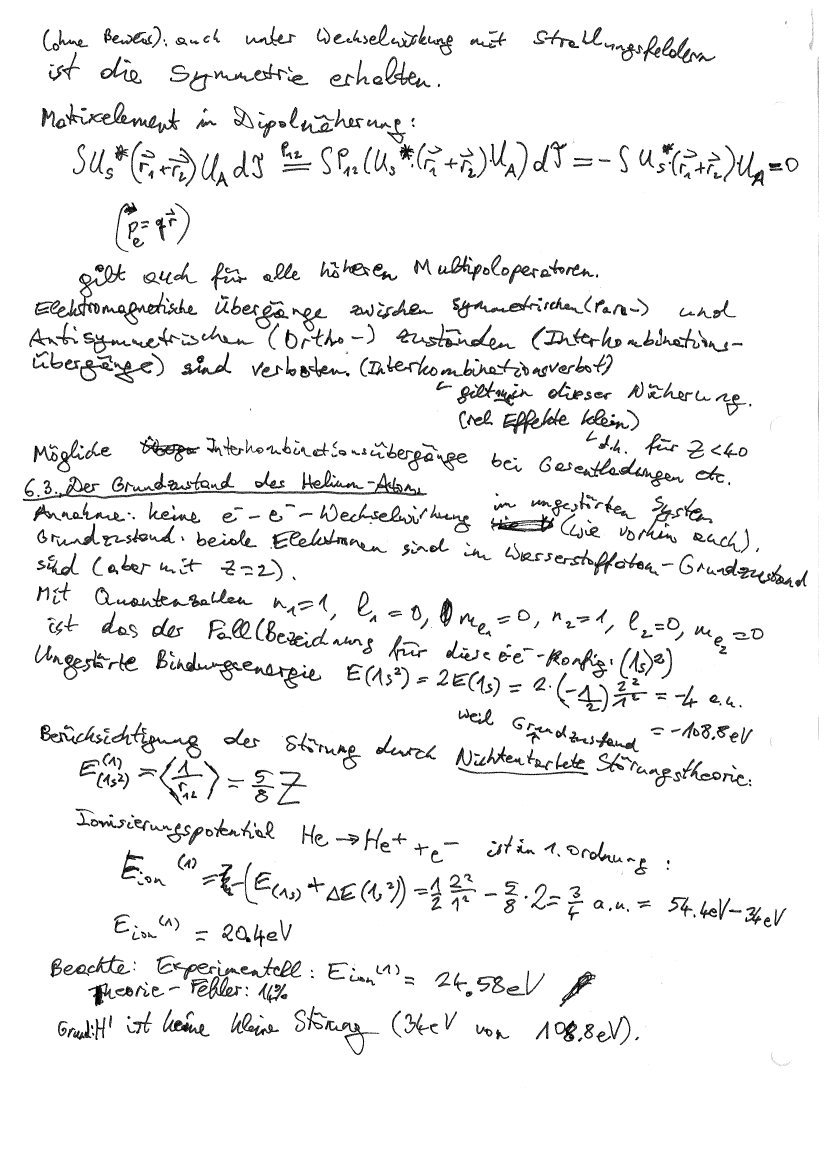 (ohne Beweis): auch unter Wechselwirkung mit Strahlungsfeldern
ist die Symmetrie erhalten.
Matrixelement in Dipolnäherung:
∫U_S^*(r⃗_1+r⃗_2)U_A dτ =^{P_12} ∫P_12(U_S^*·(r⃗_1+r⃗_2)U_A)dτ = -∫U_S^*·(r⃗_1+r⃗_2)U_A=0
(p⃗_e=qr⃗)
gilt auch für alle höheren Multipoloperatoren.
Elektromagnetische Übergänge zwischen symmetrischen (Para-) und
Antisymmetrischen (Ortho-) zuständen (Interkombinations-
übergänge) sind verboten. (Interkombinationsverbot)
gilt in dieser Näherung.
(rel Effekte klein)
d.h. für Z<40
Mögliche Interkombinationsübergänge bei Gasentladungen etc.
6.3. Der Grundzustand des Helium-Atoms
Annahme: keine e⁻-e⁻-Wechselwirkung im ungestörten System (wie vorhin auch).
Grundzustand: beide Elektronen sind im Wasserstoffatom-Grundzustand
sind (aber mit Z=2).
Mit Quantenzahlen n_1=1, l_1=0, m_{l_1}=0, n_2=1, l_2=0, m_{l_2}=0
ist das der Fall (Bezeichnung für diese e⁻-Konfig: (1s)²)
Ungestörte Bindungsenergie E(1s²) = 2E(1s) = 2·(-1/2) 2²/1² = -4 a.u.
weil Grundzustand = -108.8eV
Berücksichtigung der Störung durch Nichtentartete Störungstheorie:
E^{(1)}_{(1s²)} = ⟨1/r_12⟩ = 5/8 Z
Ionisierungspotential He → He⁺ + e⁻ ist in 1. Ordnung:
E_ion^{(1)} = -(E_(1s) + ΔE(1s²)) = 1/2 2²/1² - 5/8·2 = 3/4 a.u. = 54.4eV-34eV
E_ion^{(1)} = 20.4eV
Beachte: Experimentell: E_ion^{(1)} = 24.58eV
Theorie-Fehler: 14%
Grund: H' ist keine kleine Störung (34eV von 108.8eV).